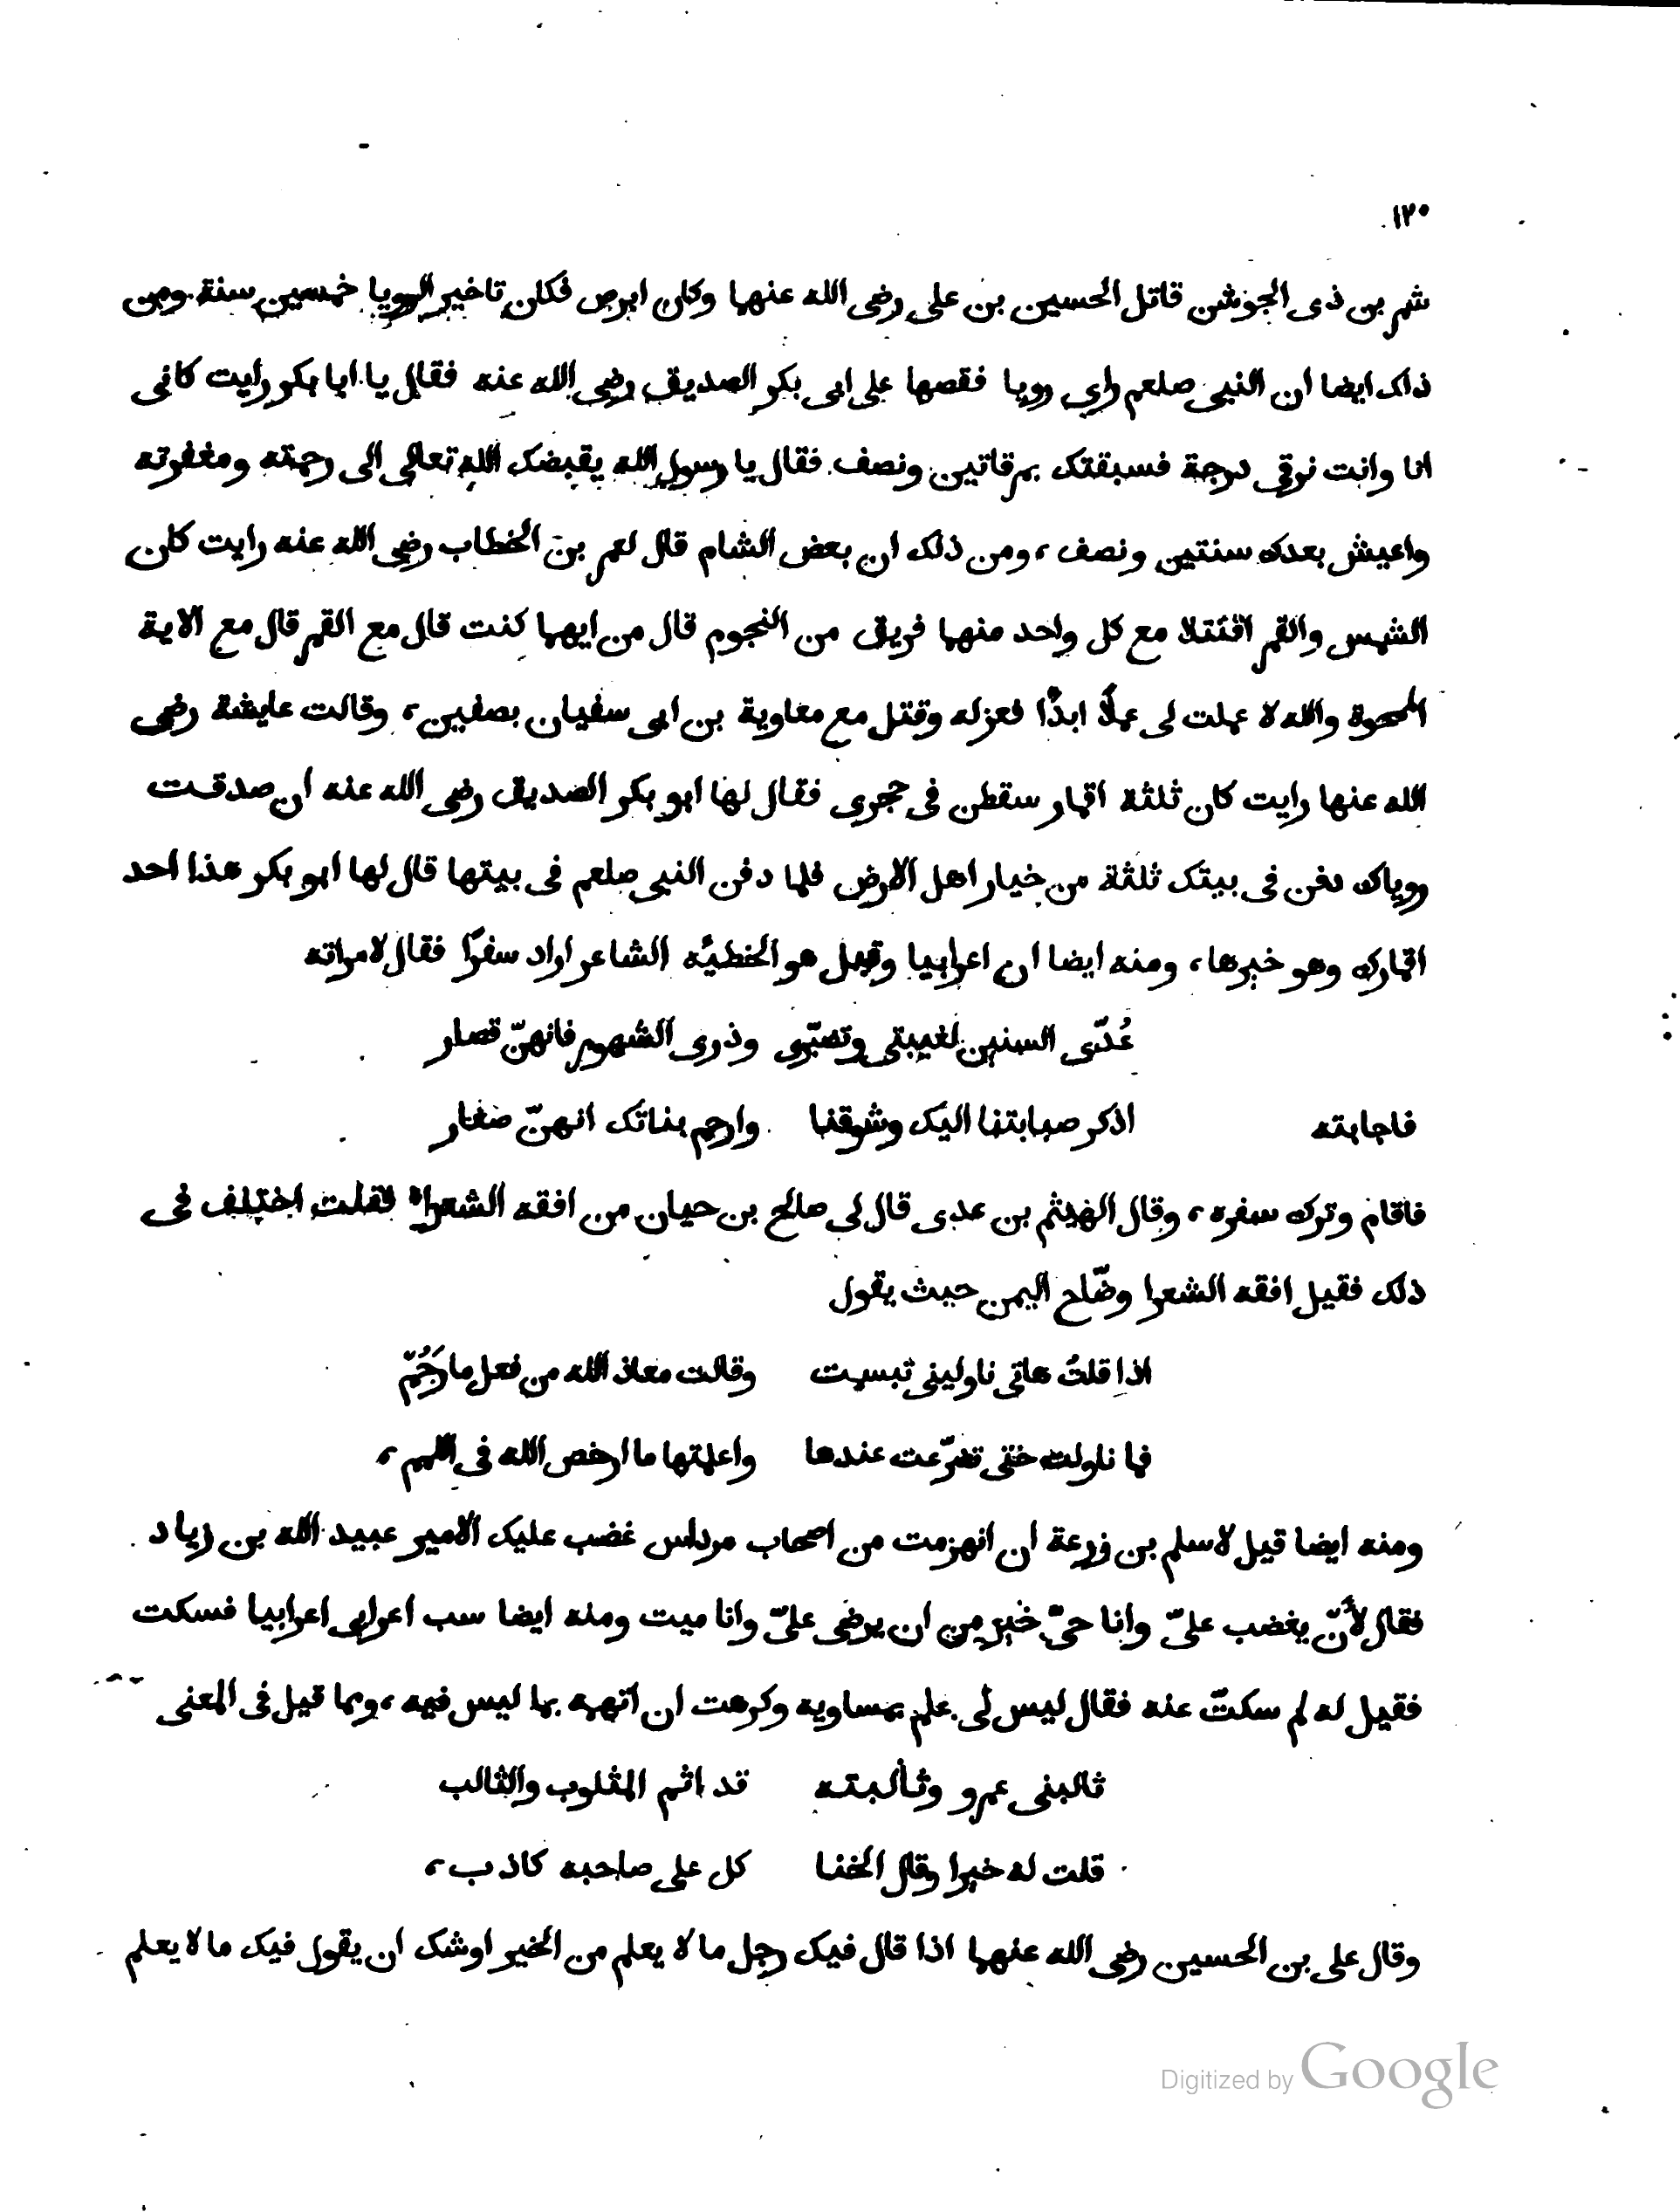 ١٢٠
شمر بن ذى الجوشن قاتل الحسين بن على رضى الله عنهما وكان ابرص فكان تاخير الرويا خمسين سنة ومن
ذلك ايضا ان النبى صلعم راى رويا فقصها على ابى بكر الصديق رضى الله عنه فقال يا ابا بكر رايت كانى
انا وانت نرقى درجة فسبقتك بمرقاتين ونصف فقال يا رسول الله يقبضك الله تعالى الى رحمته ومغفرته
واعيش بعدك سنتين ونصف، ومن ذلك ان بعض الشام قال لعمر بن الخطاب رضى الله عنه رايت كان
الشمس والقمر اقتتلا مع كل واحد منهما فريق من النجوم قال من ايهما كنت قال مع القمر قال مع الاية
الممحوة والله لا عملت لى عملًا ابدًا فعزله وقتل مع معاوية بن ابى سفيان بصفين، وقالت عايشة رضى
الله عنها رايت كان ثلثة اقمار سقطن فى حجرى فقال لها ابو بكر الصديق رضى الله عنه ان صدقت
روياك دفن فى بيتك ثلثة من خيار اهل الارض فلما دفن النبى صلعم فى بيتها قال لها ابو بكر هذا احد
اقمارك وهو خيرها، ومنه ايضا ان اعرابيا وقيل هو الخطيئه الشاعر اراد سفرًا فقال لامراته
عُدّى السنين لغيبتى وتصبّرى وذرى الشهور فانهنّ قصار
فاجابته اذكر صبابتنا اليك وشوقنا وارحم بناتك انهنّ صغار
فاقام وترك سفره، وقال الهيثم بن عدى قال لى صالح بن حيان من افقه الشعراء فقلت اختلف فى
ذلك فقيل افقه الشعرا وضّاح اليمن حيث يقول
اذا قلتُ هاتى ناولينى تبسمت وقالت معاذ الله من فعل ما حَرُمْ
فما ناولت حتى تضرّعت عندها واعلمتها ما ارخص الله فى اللمم،
ومنه ايضا قيل لاسلم بن زرعة ان انهزمت من اصحاب مرداس غضب عليك الامير عبيد الله بن زياد
فقال لأنّ يغضب علىّ وانا حىّ خير من ان يرضى علىّ وانا ميت ومنه ايضا سب اعرابى اعرابيا فسكت
فقيل له لم سكتّ عنه فقال ليس لى علم بمساويه وكرهت ان اتهمه بما ليس فيه، ومما قيل فى المعنى
ثالبنى عمرو وثألبته قد اثم المثلوب والثالب
قلت له خيرا وقال الخنا كل على صاحبه كاذب،
وقال على بن الحسين رضى الله عنهما اذا قال فيك رجل ما لا يعلم من الخير اوشك ان يقول فيك ما لا يعلم
Digitized by Google